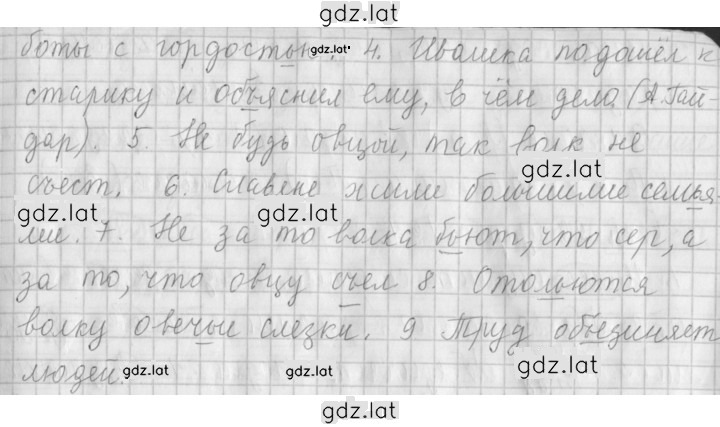 gdz.lat
боты с гордостью. gdz.lat 4. Ивашка подошёл к
старику и объяснил ему, в чём дело (А. Гай-
дар). 5. Не будь овцой, так волк не
gdz.lat
съест. 6. Славяне жили большими семья-
gdz.lat gdz.lat gdz.lat
ми. 7. Не за то волка бьют, что сер, а
за то, что овцу съел 8. Отольются
волку овечьи слезки. 9 Труд объединяет
людей. gdz.lat gdz.lat gdz.lat
gdz.lat